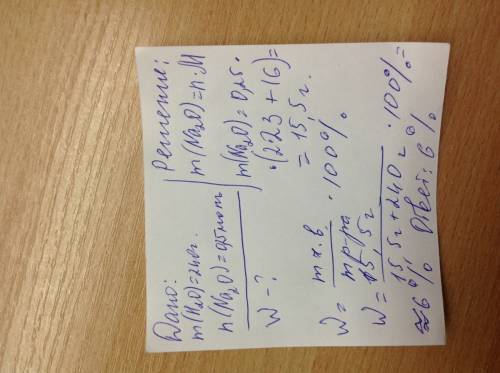 Дано:
m(H₂O)=240г.
n(Na₂O)=0,25моль
W - ?
Решение:
m(Na₂O)=n·M
m(Na₂O)=0,25·
·(2·23+16)=
= 15,5г.
W = m в / m р-ра · 100%
W = 15,5г / 15,5г+240г · 100% =
≈6% Ответ: 6%